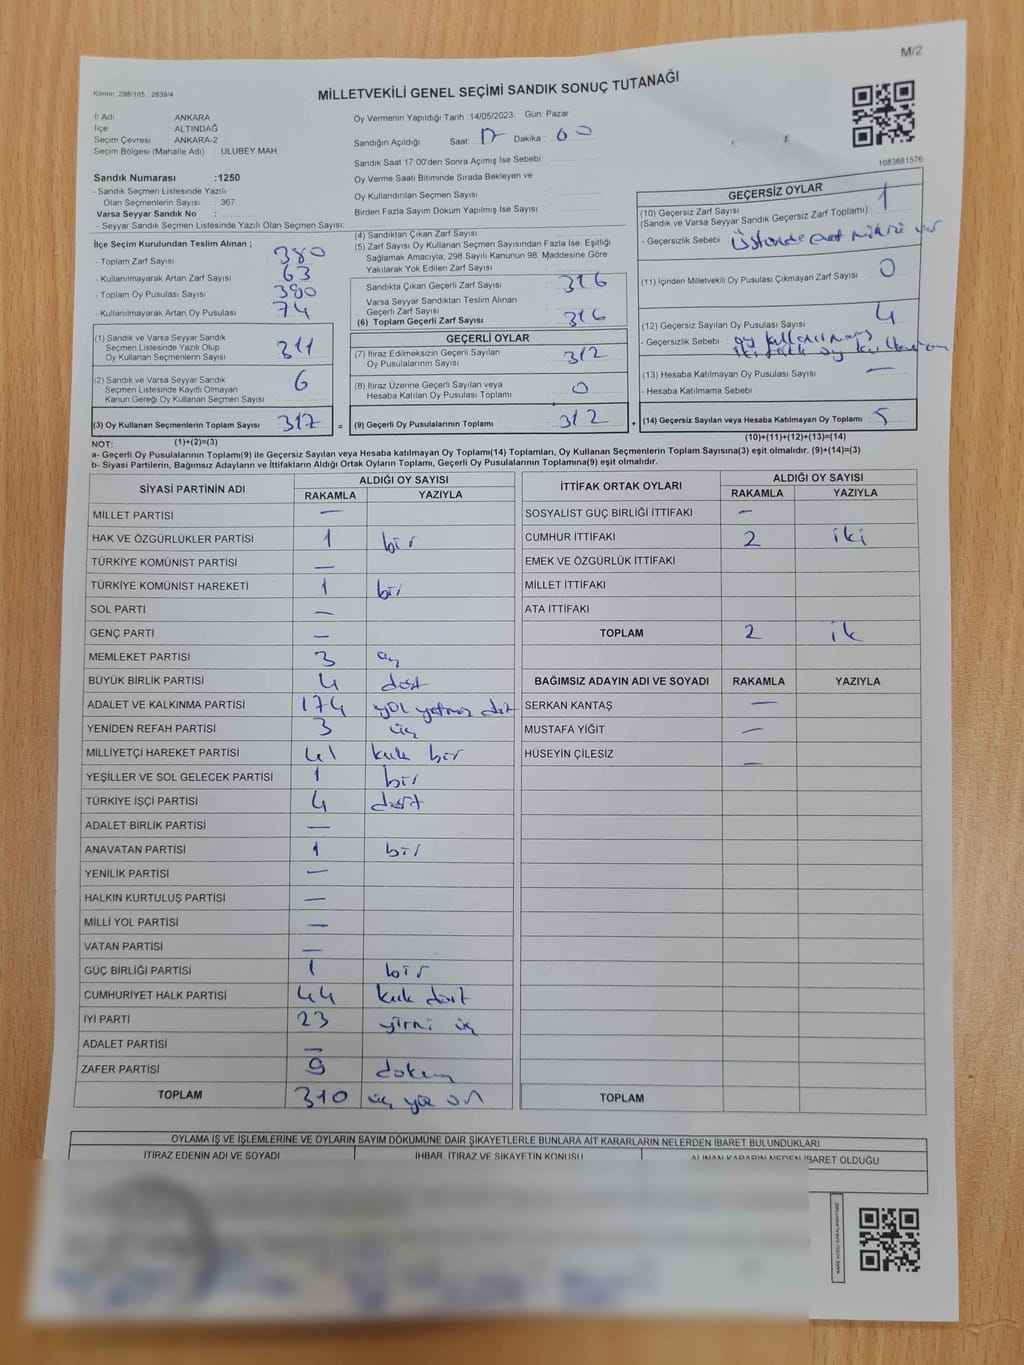 M/2
Kanun: 298/105 , 2839/4
MİLLETVEKİLİ GENEL SEÇİMİ SANDIK SONUÇ TUTANAĞI
İl Adı : ANKARA
İlçe : ALTINDAĞ
Seçim Çevresi : ANKARA-2
Seçim Bölgesi (Mahalle Adı) : ULUBEY MAH.
Sandık Numarası :1250
- Sandık Seçmen Listesinde Yazılı
Olan Seçmenlerin Sayısı : 367
Varsa Seyyar Sandık No :
- Seyyar Sandık Seçmen Listesinde Yazılı Olan Seçmen Sayısı:
Oy Vermenin Yapıldığı Tarih :14/05/2023 Gün: Pazar
Sandığın Açıldığı Saat: 17 Dakika : 00
Sandık Saat 17:00'den Sonra Açımış İse Sebebi :
Oy Verme Saati Bitiminde Sırada Bekleyen ve
Oy Kullandırılan Seçmen Sayısı :
Birden Fazla Sayım Döküm Yapılmış İse Sayısı :
1083681576
İlçe Seçim Kurulundan Teslim Alınan ;
- Toplam Zarf Sayısı : 380
- Kullanılmayarak Artan Zarf Sayısı : 63
- Toplam Oy Pusulası Sayısı : 380
- Kullanılmayarak Artan Oy Pusulası : 74
(1) Sandık ve Varsa Seyyar Sandık
Seçmen Listesinde Yazılı Olup
Oy Kullanan Seçmenlerin Sayısı : 311
(2) Sandık ve Varsa Seyyar Sandık
Seçmen Listesinde Kayıtlı Olmayan
Kanun Gereği Oy Kullanan Seçmen Sayısı : 6
(3) Oy Kullanan Seçmenlerin Toplam Sayısı : 317
(4) Sandıktan Çıkan Zarf Sayısı :
(5) Zarf Sayısı Oy Kullanan Seçmen Sayısından Fazla İse, Eşitliği
Sağlamak Amacıyla; 298 Sayılı Kanunun 98. Maddesine Göre
Yakılarak Yok Edilen Zarf Sayısı :
Sandıkta Çıkan Geçerli Zarf Sayısı : 316
Varsa Seyyar Sandıktan Teslim Alınan
Geçerli Zarf Sayısı :
(6) Toplam Geçerli Zarf Sayısı : 316
GEÇERLİ OYLAR
(7) İtiraz Edilmeksizin Geçerli Sayılan
Oy Pusulalarının Sayısı : 312
(8) İtiraz Üzerine Geçerli Sayılan veya
Hesaba Katılan Oy Pusulası Toplamı : 0
= (9) Geçerli Oy Pusulalarının Toplamı : 312
GEÇERSİZ OYLAR
(10) Geçersiz Zarf Sayısı : 1
(Sandık ve Varsa Seyyar Sandık Geçersiz Zarf Toplamı)
- Geçersizlik Sebebi :
(11) İçinden Milletvekili Oy Pusulası Çıkmayan Zarf Sayısı : 0
(12) Geçersiz Sayılan Oy Pusulası Sayısı : 4
- Geçersizlik Sebebi : oy kullanılmamış
(13) Hesaba Katılmayan Oy Pusulası Sayısı : —
- Hesaba Katılmama Sebebi :
+ (14) Geçersiz Sayılan veya Hesaba Katılmayan Oy Toplamı : 5
(1)+(2)=(3)
(10)+(11)+(12)+(13)=(14)
NOT:
a- Geçerli Oy Pusulasının Toplamı(9) ile Geçersiz Sayılan veya Hesaba katılmayan Oy Toplamı(14) Toplamları, Oy Kullanan Seçmenlerin Toplam Sayısına(3) eşit olmalıdır. (9)+(14)=(3)
b- Siyasi Partilerin, Bağımsız Adayların ve İttifakların Aldığı Ortak Oyların Toplamı, Geçerli Oy Pusulalarının Toplamına(9) eşit olmalıdır.
SİYASİ PARTİNİN ADI ALDIĞI OY SAYISI
RAKAMLA YAZIYLA
MİLLET PARTİSİ —
HAK VE ÖZGÜRLÜKLER PARTİSİ 1 bir
TÜRKİYE KOMÜNİST PARTİSİ —
TÜRKİYE KOMÜNİST HAREKETİ 1 bir
SOL PARTİ —
GENÇ PARTİ —
MEMLEKET PARTİSİ 3 üç
BÜYÜK BİRLİK PARTİSİ 4 dört
ADALET VE KALKINMA PARTİSİ 174 yüz yetmiş dört
YENİDEN REFAH PARTİSİ 3 üç
MİLLİYETÇİ HAREKET PARTİSİ 41 kırk bir
YEŞİLLER VE SOL GELECEK PARTİSİ 1 bir
TÜRKİYE İŞÇİ PARTİSİ 4 dört
ADALET BİRLİK PARTİSİ —
ANAVATAN PARTİSİ 1 bir
YENİLİK PARTİSİ —
HALKIN KURTULUŞ PARTİSİ —
MİLLİ YOL PARTİSİ —
VATAN PARTİSİ —
GÜÇ BİRLİĞİ PARTİSİ 1 bir
CUMHURİYET HALK PARTİSİ 44 kırk dört
İYİ PARTİ 23 yirmi üç
ADALET PARTİSİ —
ZAFER PARTİSİ 9 dokuz
TOPLAM 310 üç yüz on
İTTİFAK ORTAK OYLARI ALDIĞI OY SAYISI
RAKAMLA YAZIYLA
SOSYALİST GÜÇ BİRLİĞİ İTTİFAKI —
CUMHUR İTTİFAKI 2 iki
EMEK VE ÖZGÜRLÜK İTTİFAKI
MİLLET İTTİFAKI
ATA İTTİFAKI
TOPLAM 2 iki
BAĞIMSIZ ADAYIN ADI VE SOYADI RAKAMLA YAZIYLA
SERKAN KANTAŞ —
MUSTAFA YİĞİT —
HÜSEYİN ÇİLESİZ —
TOPLAM
OYLAMA İŞ VE İŞLEMLERİNE VE OYLARIN SAYIM DÖKÜMÜNE DAİR ŞİKAYETLERLE BUNLARA AİT KARARLARIN NELERDEN İBARET BULUNDUKLARI
İTİRAZ EDENİN ADI VE SOYADI İHBAR, İTİRAZ VE ŞİKAYETİN KONUSU ALINAN KARARIN NEDEN İBARET OLDUĞU
KARE KODU KARALAMAYINIZ!